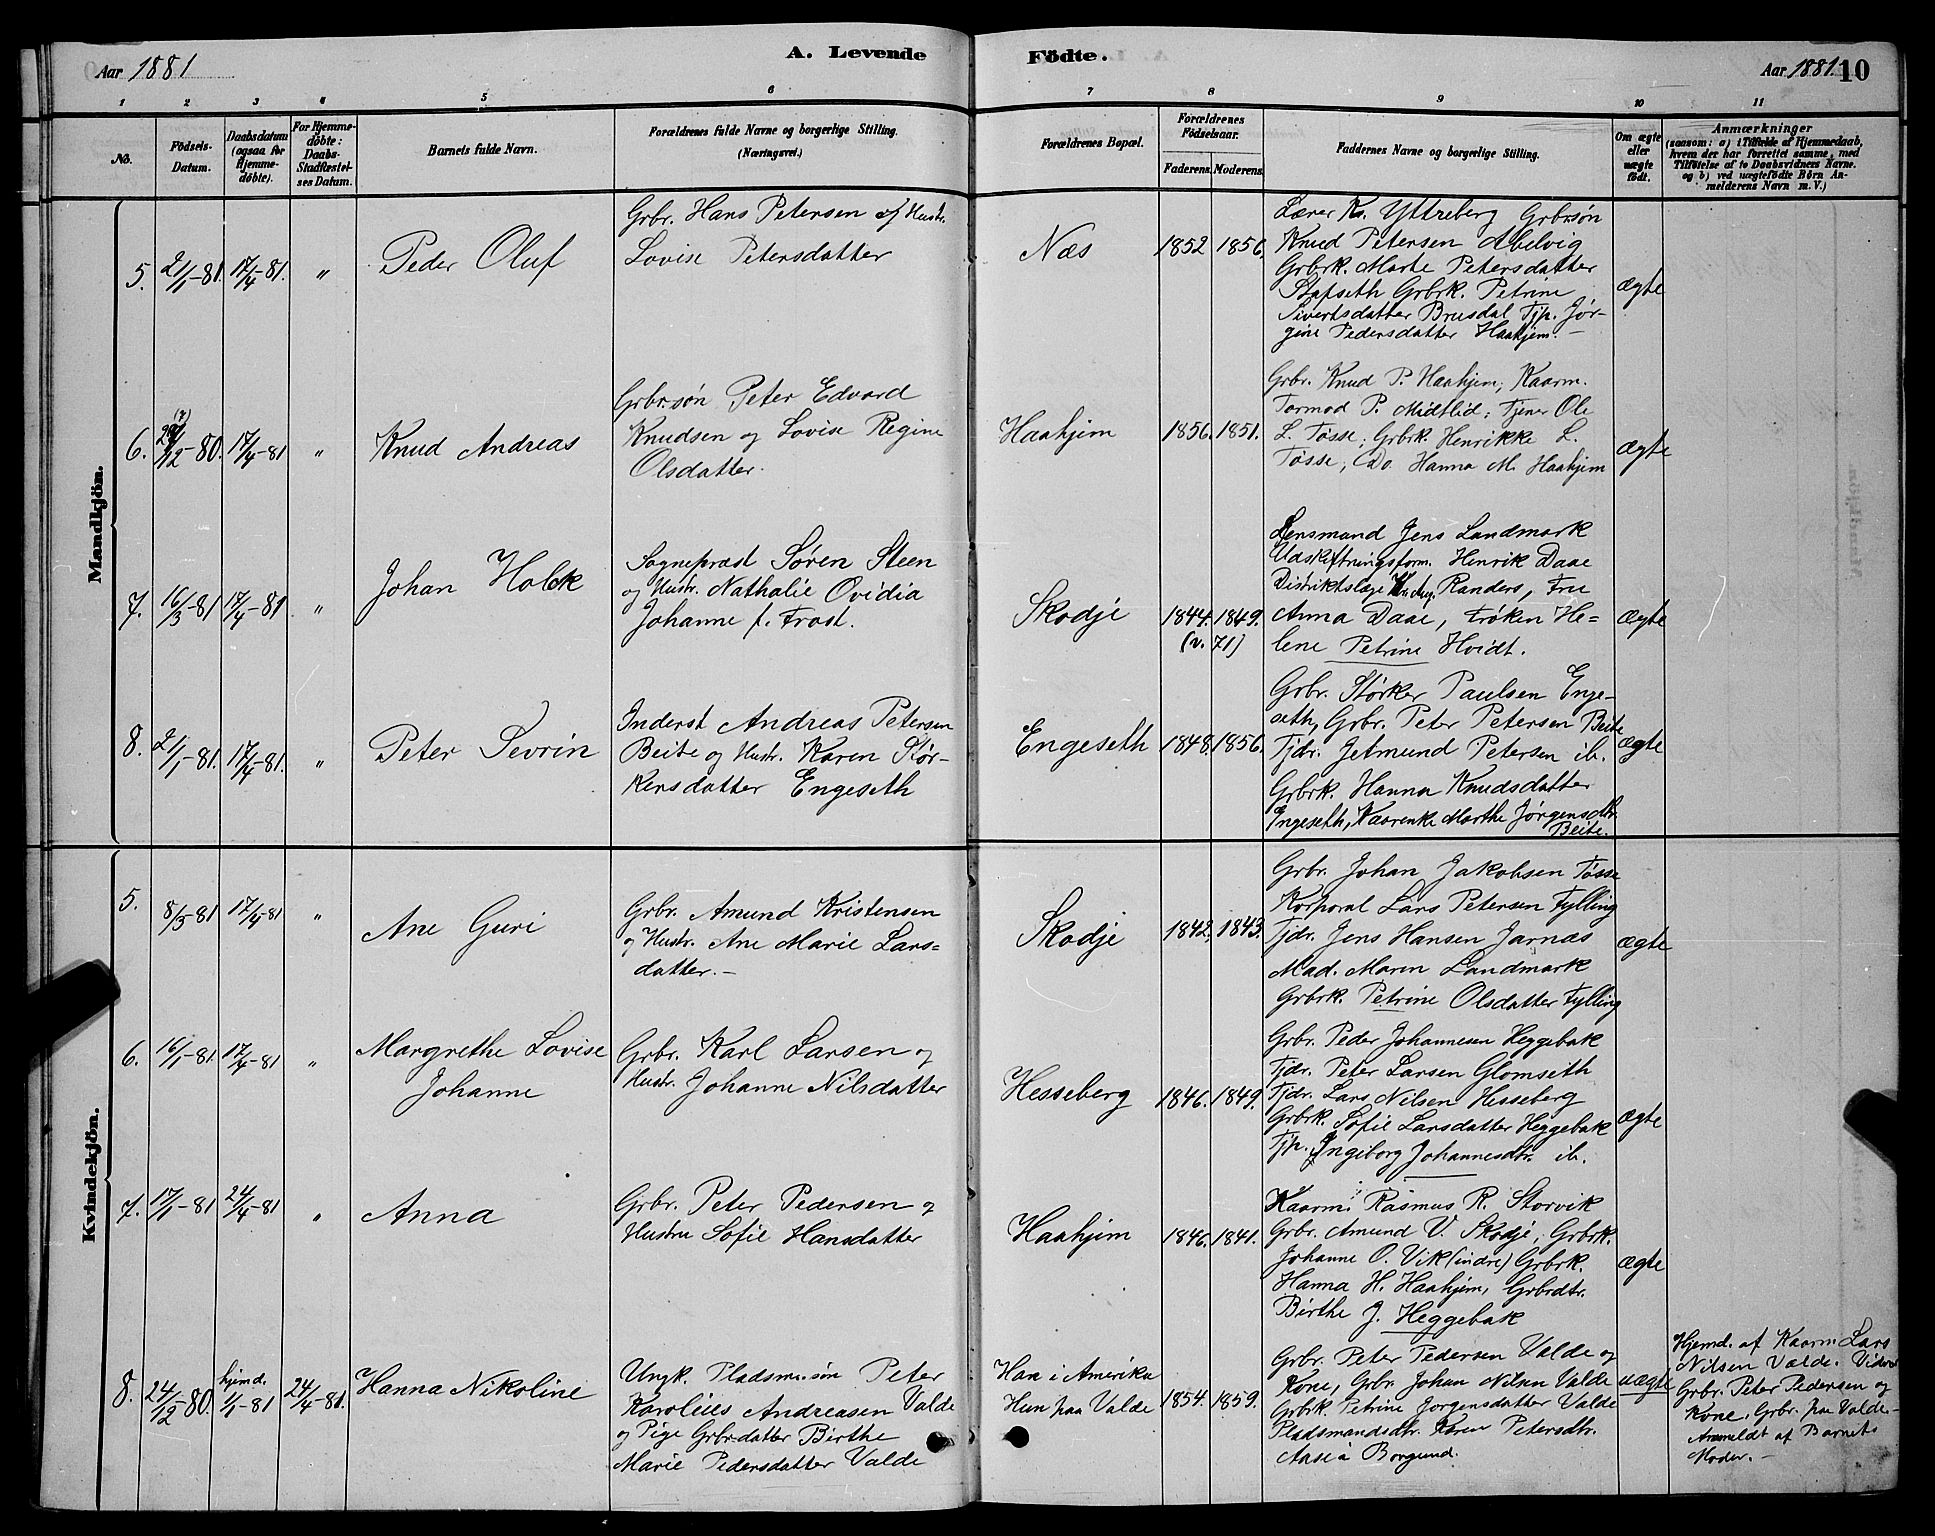 Aar 1881
A. Levende Födte.
Aar 1881. 10
1 2 3 4 5 6 7 8 9 10 11
No.
Födsels-
Datum.
Daabsdatum
(ogsaa for
Hjemme-
döbte).
For Hjemme-
döbte:
Daabs-
Stadfæstel-
ses Datum.
Barnets fulde Navn.
Forældrenes fulde Navne og borgerlige Stilling.
(Næringsvei.)
Forældrenes Bopæl.
Forældrenes
Födselsaar.
Faderens. Moderens.
Faddernes Navne og borgerlige Stilling.
Om ægte
eller
uægte
födt.
Anmærkninger
(saasom: a) i Tilfælde af Hjemmedaab,
hvem der har forrettet samme, med
Tilföielse af to Daabsvidners Navne.
og b) ved uægtefödte Börn An-
melderens Navn m. V.)
Mandkjön.
5. 21/1-81. 17/4-81. " Peder Oluf
Grbr. Hans Petersen og Hustr.
Lovise Petersdatter
Næs 1852 1856.
Lærer Kr. Yttreberg Grbrsøn
Knud Petersen Abelvig
Grbrk. Marte Petersdatter
Stafseth Grbrk. Petrine
Sivertsdatter Brusdal Tjp. Jør-
gine Pedersdatter Haahjem. –
ægte
6. /12-80. 17/4-81 " Knud Andreas
Grbr.søn Peter Edvard
Knudsen og Lovise Regine
Olsdatter.
Haahjem 1856. 1851.
Grbr. Knud P. Haahjem, Kaarm.
Tormod P. Midtlid; Tjener Ole
L. Tøsse; Grbrk. Henrikke L.
Tøsse, Do. Hanna M. Haahjem
ægte
7. 16/3-81 17/4-81 " Johan Holck
Sognepræst Søren Steen
og Hustr. Nathalie Ovidia
Johanne f. Frost.
Skodje 1844. 1849.
(v. 71)
Lensmand Jens Landmark
Udskiftningsform. Henrik Daae
Distriktslæge Randers, Fru
Anna Daae, Frøken He-
lene Petrine Hvidt.
ægte
8. 2/1-81. 17/4-81. " Peter Sevrin
Inderst Andreas Petersen
Beite og Hustr. Karen Stør-
kersdatter Engeseth
Engeseth 1848. 1856.
Grbr. Størker Paulsen Enge-
seth, Grbr. Peter Petersen Beite
Tjdr. Jetmund Petersen ib.
Grbrk. Hanna Knudsdatter
Engeseth, Kaarenke Marthe Jørgensdtr.
Beite.
ægte
Kvindekjön.
5. 8/3-81 17/4-81 " Ane Guri
Grbr. Amund Kristensen
og Hustr. Ane Marie Lars-
datter. –
Skodje 1842. 1843.
Grbr. Johan Jakobsen Tøsse
Korporal Lars Petersen Fylling
Tjdr. Jens Hansen Jarnæs
Mad. Maren Landmark
Grbrk. Petrine Olsdatter Fylling
ægte
6. 16/1-81. 17/4-81 " Margrethe Lovise
Johanne
Grbr. Karl Larsen og
Hustr. Johanne Nilsdatter
Hesseberg 1846. 1849.
Grbr. Peder Johannesen Heggebak
Tjdr. Peter Larsen Glomseth
Tjdr. Lars Nilsen Hesseberg
Grbrk. Sofie Larsdatter Heggebak
Tjp. Ingiborg Johannesdtr. ib.
ægte
7. 17/1-81 24/4-81 " Anna
Grbr. Peter Pedersen og
Hustru Sofie Hansdatter
Haahjem 1846. 1841.
Kaarm. Rasmus R. Storvik
Grbr. Amund V. Skodje, Grbrk.
Johanne O. Vik (indre) Grbrk.
Hanna H. Haahjem, Grbrdtr.
Birthe J. Heggebak
ægte
8. 24/12-80. hjemd. 1/1-81 24/4-81. Hanna Nikoline
Ungk. Pladsm.søn Peter
Karolius Andreasen Valde
og Pige Grbr.datter Birthe
Marie Pedersdatter Valde
Han i Amerika
Hun paa Valde
1854. 1859.
Grbr. Peter Pedersen Valde og
Kone, Grbr. Johan Nilsen Valde
Grbrk. Petrine Jørgensdatter Valde
Pladsmandsdtr. Karen Petersdtr.
Aase i Borgund.
uægte
Hjemd. af Kaarm Lars
Nilsen Valde. Vidner
Grbr. Peter Pedersen og
Kone, Grbr. paa Valde –
Anmeldt af Barnets
Moder. –